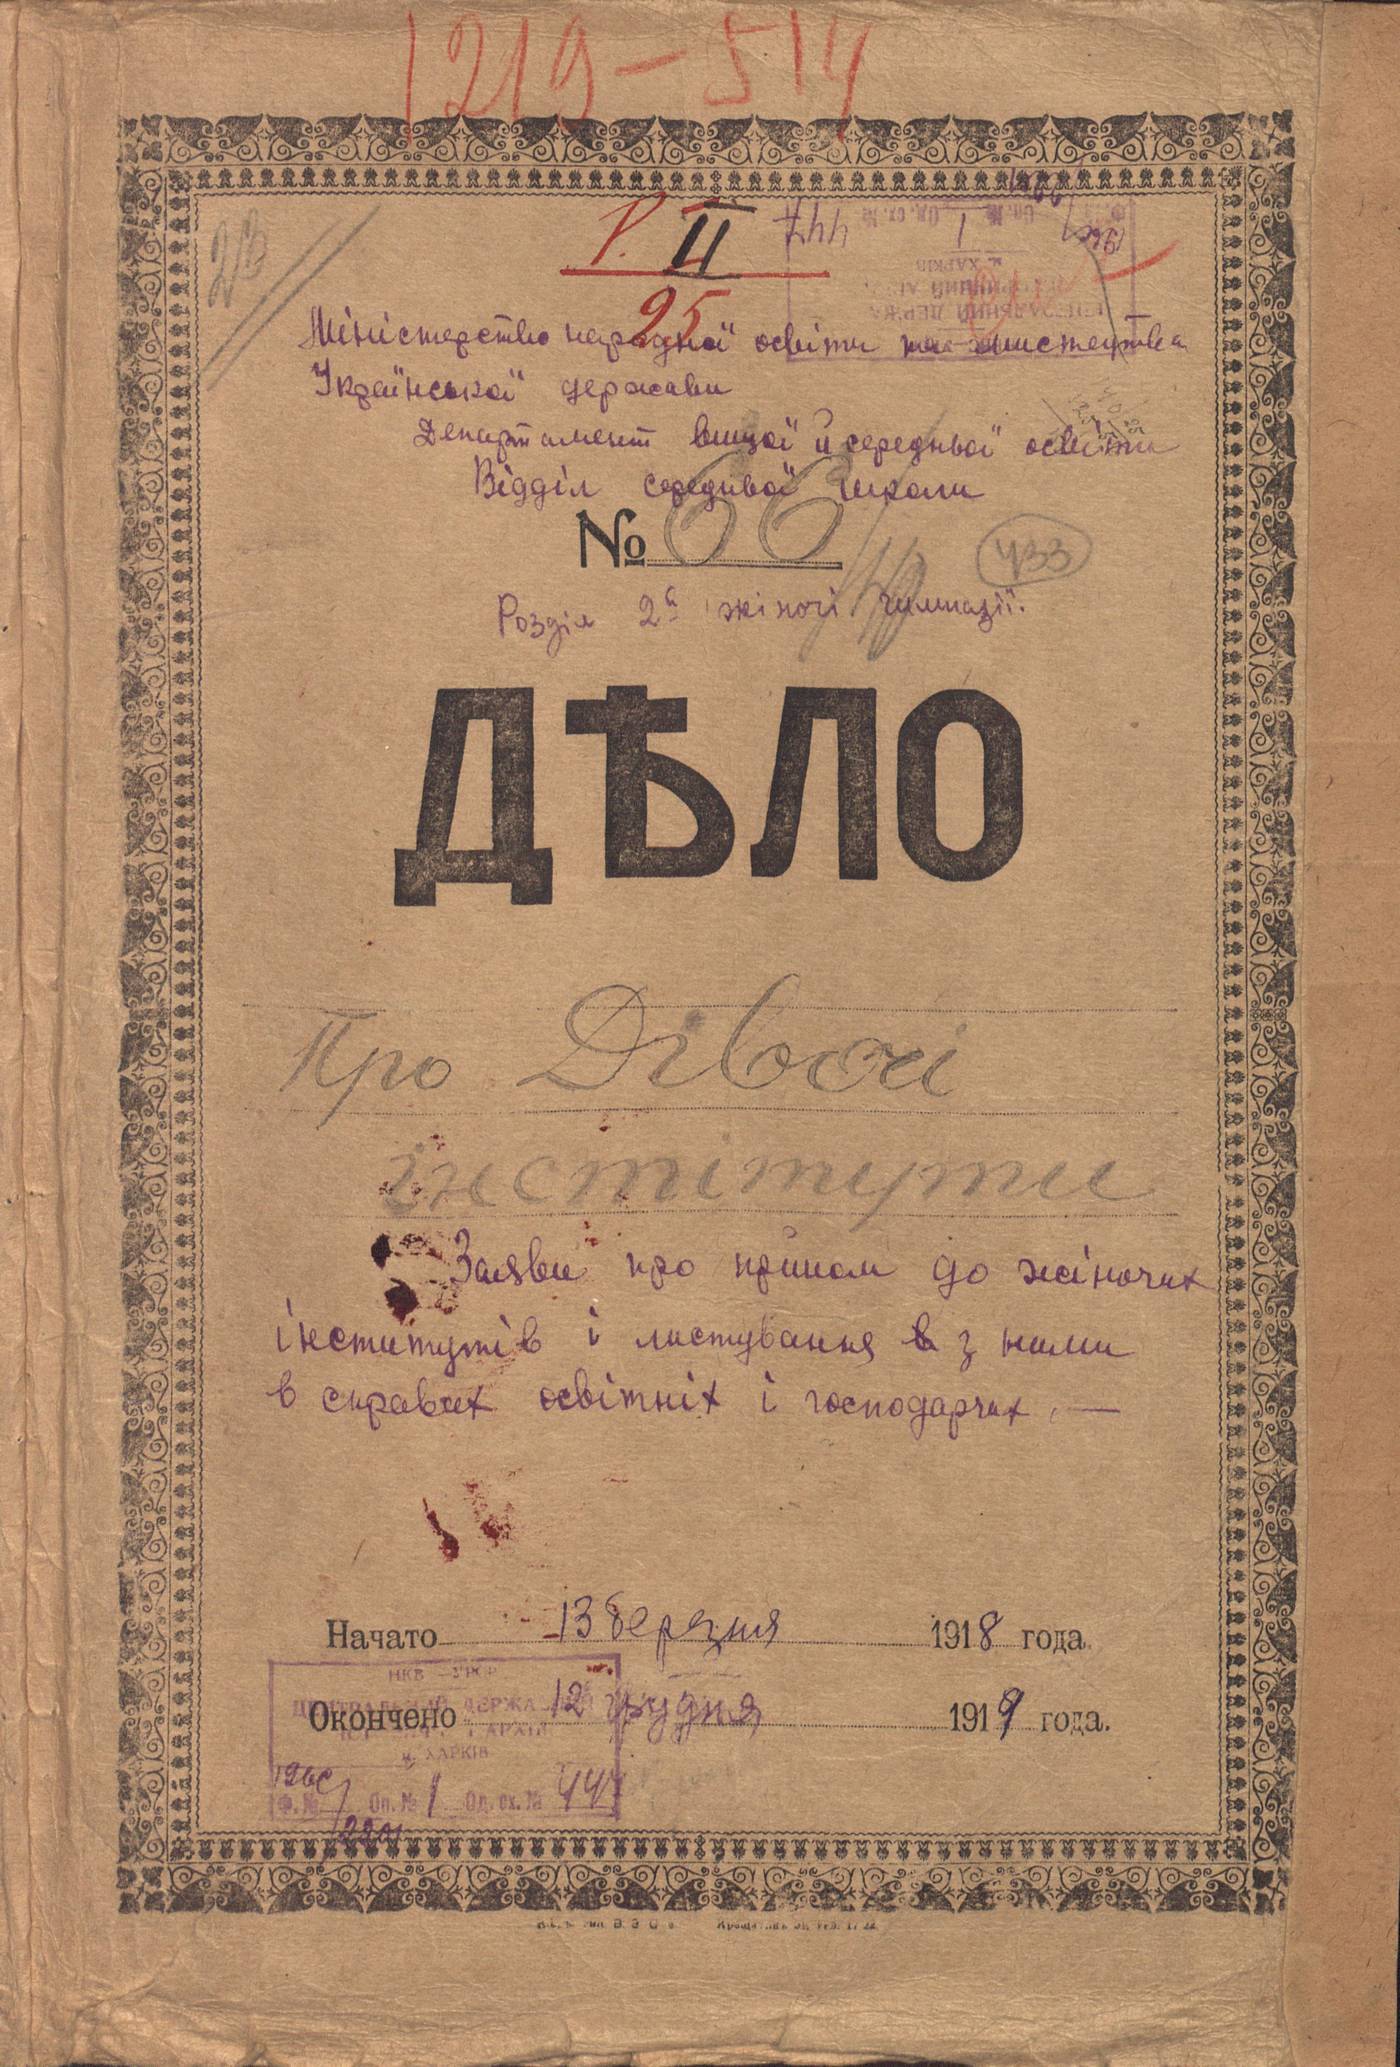 1219-514
Р. II
25
Міністерство народньої освіти та мистецтва
Української держави
Департамент вищої й середньої освіти
Відділ середньої школи
№ 66
433
Розділ 2й жіночі гимназії.
ДѢЛО
Про Дівочі
інстітути
Заяви про прийом до жіночих
інститутів і листування з ними
в справах освітніх і господарчих. —
Начато 13 березня 1918 года
Окончено 12 грудня 1919 года.
НКВ - УРСР
ЦЕНТРАЛЬНИЙ ДЕРЖАВНИЙ
АРХІВ
м. ХАРКІВ
Ф. № Оп. № 1 Од. сх. № 447
2201